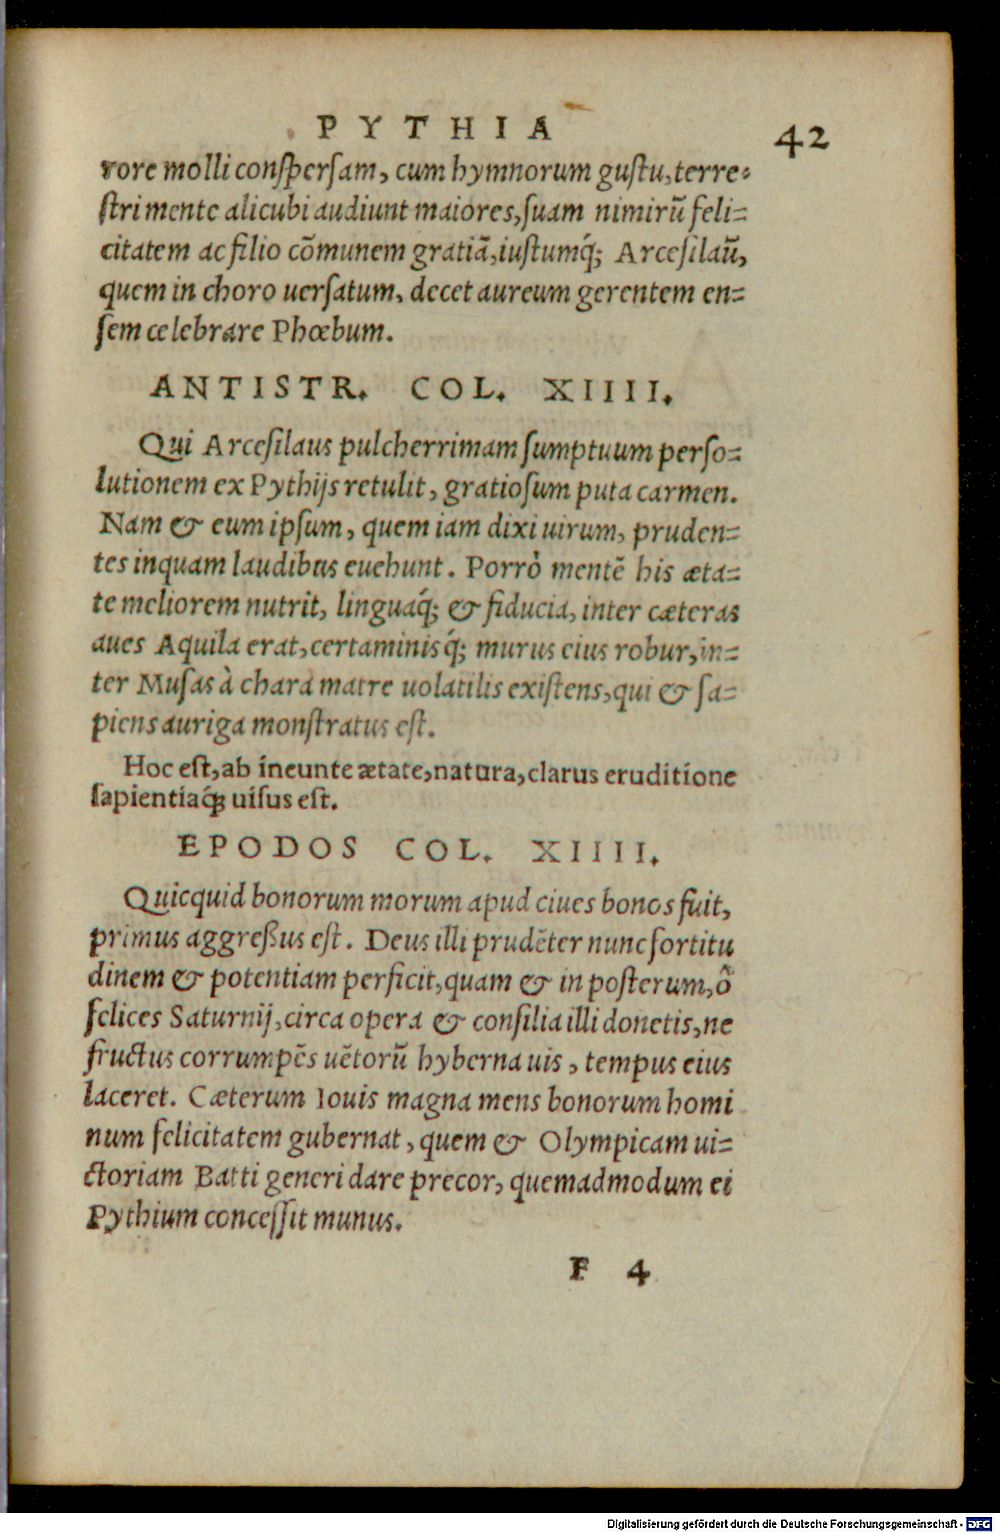 PYTHIA 42
rore molli conspersam, cum hymnorum gustu, terre-
stri mente alicubi audiunt maiores, suam nimirū feli-
citatem ac filio cōmunem gratiā, iustumq́; Arcesilaū,
quem in choro uersatum, decet aureum gerentem en-
sem celebrare Phœbum.
ANTISTR. COL. XIIII.
Qui Arcesilaus pulcherrimam sumptuum perso-
lutionem ex Pythijs retulit, gratiosum puta carmen.
Nam & eum ipsum, quem iam dixi uirum, pruden-
tes inquam laudibus euehunt. Porrò mentē his æta-
te meliorem nutrit, linguaq́; & fiducia, inter cæteras
aues Aquila erat, certaminisq́; murus eius robur, in-
ter Musas à chara matre uolatilis existens, qui & sa-
piens auriga monstratus est.
Hoc est, ab ineunte ætate, natura, clarus eruditione
sapientiaq́; uisus est.
EPODOS COL. XIIII.
Quicquid bonorum morum apud ciues bonos fuit,
primus aggreßus est. Deus illi prudēter nunc fortitu
dinem & potentiam perficit, quam & in posterum, ô
felices Saturnij, circa opera & consilia illi donetis, ne
fructus corrumpēs uētorū hyberna uis, tempus eius
laceret. Cæterum Iouis magna mens bonorum homi
num felicitatem gubernat, quem & Olympicam ui-
ctoriam Batti generi dare precor, quemadmodum ei
Pythium concessit munus.
F 4
Digitalisierung gefördert durch die Deutsche Forschungsgemeinschaft - DFG